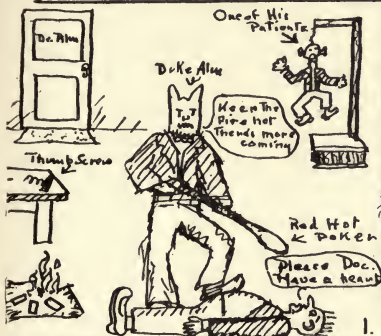 Dr. Alm
One of His
Patients
Duke Alm
Keep The
Fire hot
Theres more
coming
Thumb Screw
Red Hot
Poker
Please Doc.
Have a heart